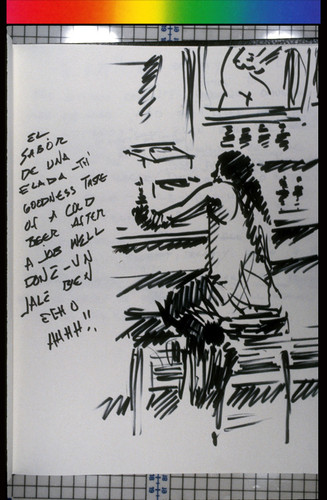 EL
SABÓR
DE UNA
ELADA - TH'
GOODNESS TASTE
OF A COLD
BEER AFTER
A JOB WELL
DONE - UN
JALE BIEN
ECHO
AHHH!!